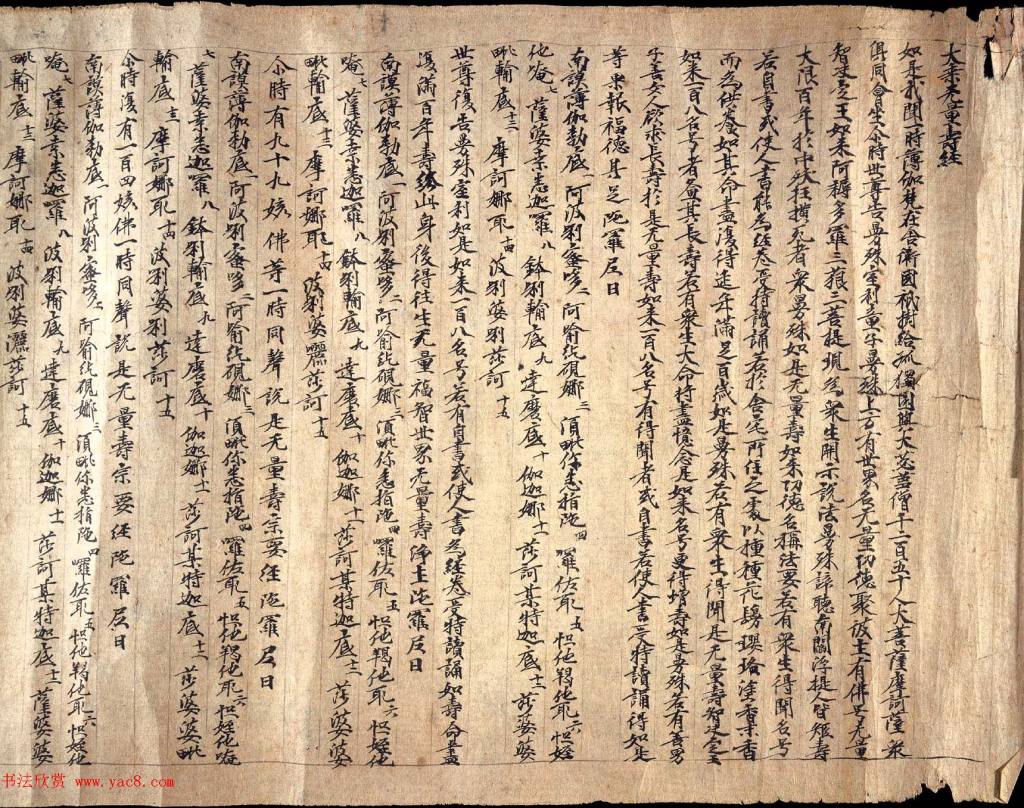 大乘无量壽經
如是我聞一時薄伽梵在舍衛國祇樹給孤獨園與大苾蒭僧千二百五十人大菩薩摩訶薩衆
俱同會坐尒時世尊告曼殊室利童子曼殊上方有世界名无量功德聚彼土有佛号无量
智決定王如來阿耨多羅三藐三菩提現爲衆生開示說法曼殊諦聽南閻浮提人皆短壽
大限百年於中夭枉橫死者衆曼殊如是无量壽如來功德名稱法要若有衆生得聞名号
若自書或使人書能爲經卷受持讀誦若於舍宅所住之處以種種花鬘瓔珞塗香末香
而爲供養如其命盡復得延年滿足百歲如是曼殊若有衆生得聞是无量壽智決定王
如來一百八名号者益其長壽若有衆生大命將盡憶念是如來名号更得增壽如是曼殊若有善男
子善女人欲求長壽於是无量壽如來一百八名号有得聞者或自書若使人書受持讀誦得如是
等果報福德具足陁羅尼曰
南謨薄伽勃底一 阿波唎蜜哆二 阿喻紇硯娜三 湏毗你悉指陁四 囉佐耶五 怛他羯他耶六 怛姪
他唵七 薩婆桒悉迦囉八 鉢唎輸底九 達磨底十 伽迦娜十一 莎訶某特迦底十二 莎婆婆
毗輸底十三 摩訶娜耶十四 波唎婆唎莎訶十五
世尊復告曼殊室利如是如來一百八名号若有自書或使人書爲經卷受持讀誦如壽命盡
復滿百年壽終此身後得往生无量福智世界无量壽淨土陁羅尼曰
南謨薄伽勃底一 阿波唎蜜哆二 阿喻紇硯娜三 湏毗你悉指陁四 囉佐耶五 怛他羯他耶六 怛姪他
唵七 薩婆桒悉迦囉八 鉢唎輸底九 達磨底十 伽迦娜十一 莎訶某特迦底十二 莎婆婆
毗輸底十三 摩訶娜耶十四 波唎婆囇莎訶十五
尒時有九十九姟佛等一時同聲說是无量壽宗要經陁羅尼曰
南謨薄伽勃底一 阿波唎蜜哆二 阿喻紇硯娜三 湏毗你悉指陁四 囉佐耶五 怛他羯他耶六 怛姪他唵
七 薩婆桒悉迦囉八 鉢唎輸底九 達磨底十 伽迦娜十一 莎訶某特迦底十二 莎婆婆毗
輸底十三 摩訶娜耶十四 波唎婆唎莎訶十五
尒時復有一百四姟佛一時同聲說是无量壽宗要經陁羅尼曰
南謨薄伽勃底一 阿波唎蜜哆二 阿喻紇硯娜三 湏毗你悉指陁四 囉佐耶五 怛他羯他耶六 怛姪他
唵七 薩婆桒悉迦囉八 波唎輸底九 達磨底十 伽迦娜十一 莎訶某特迦底十二 薩婆婆
毗輸底十三 摩訶娜耶十四 波唎婆囇莎訶十五
书法欣赏 www.yac8.com